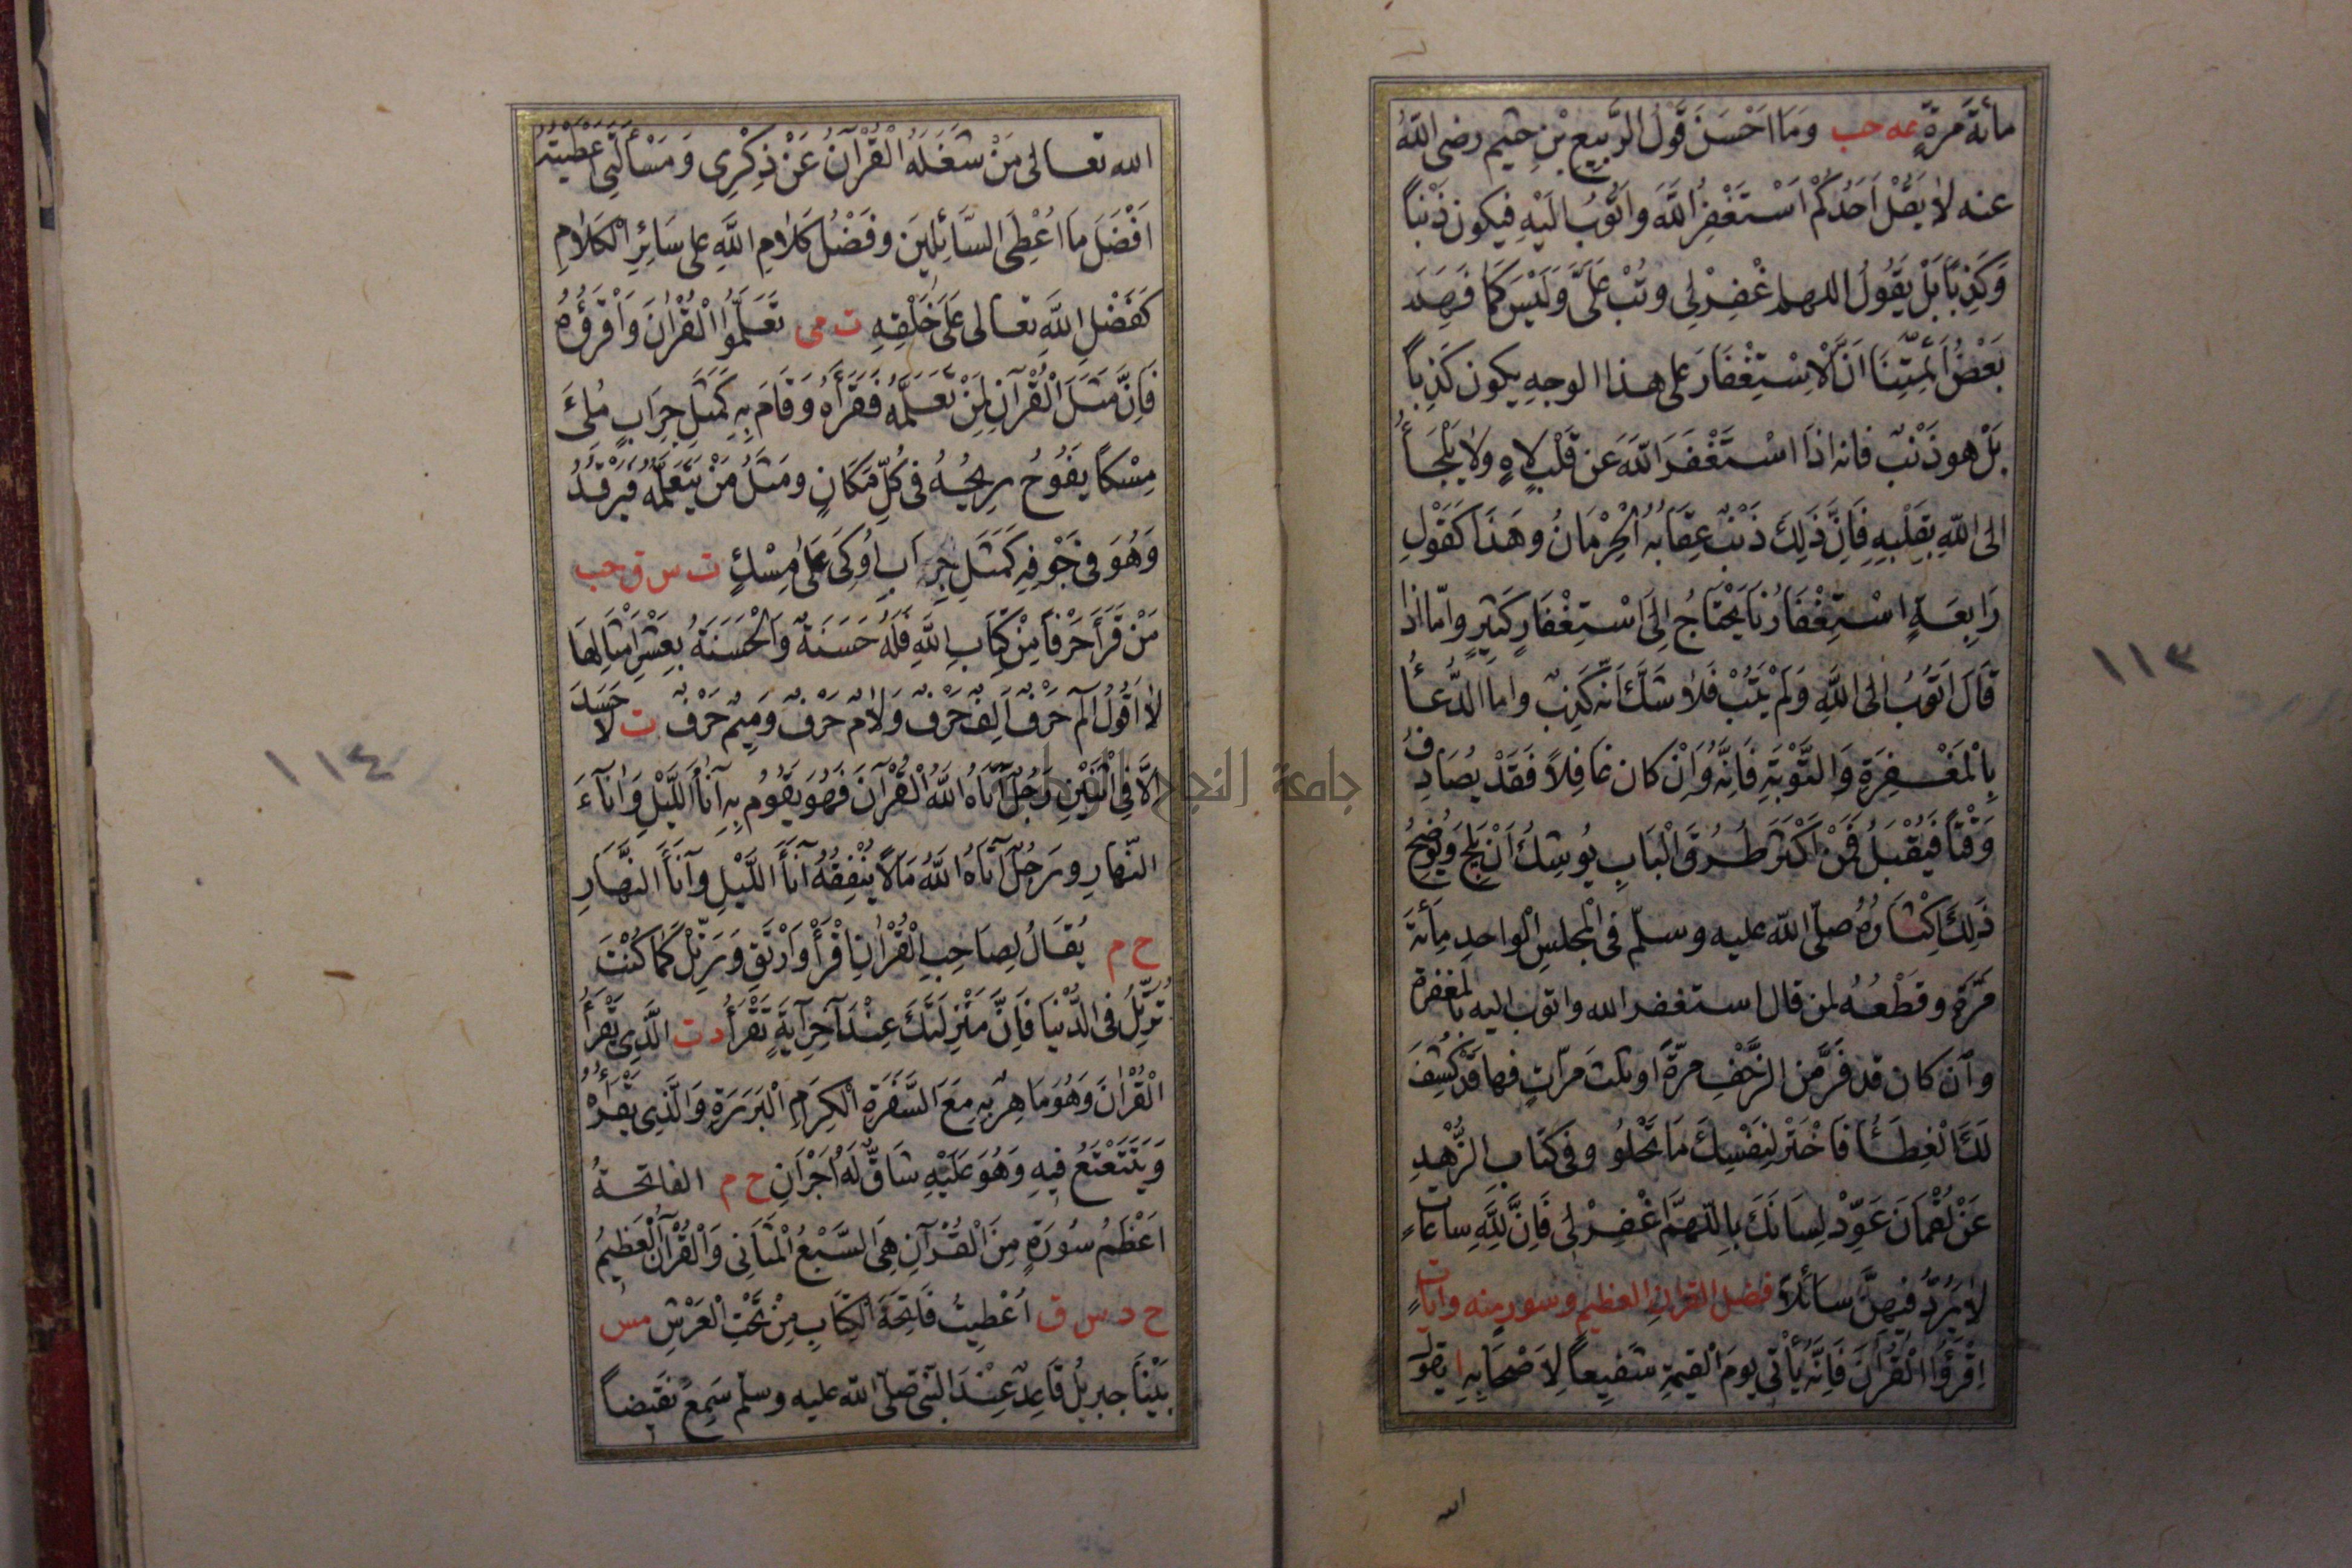 مأية مرةٍ عه حب وَمَا اَحْسَنَ قَوْلُ الرَّبِيعِ بْنِ خيثم رضى اللّٰهُ
عنه لاٰ يَقُلْ اَحَدُكُمْ اَسْتَغْفِرُ اللّٰهَ وَاَتُوبُ اِلَيْهِ فيكون ذَنْباً
وَكَذِباً بَلْ يَقُولُ اللهم اغْفِرْلِى وتُبْ عَلَىَّ وَلَيْسَ كَمَا فَهِمَه
بَعْضُ اَئِمَّتِنَا اَنَّ الْاِسْتِغْفَارَ على هذا الوجهِ يكون كَذِباً
بَلْ هو ذَنْبٌ فانه اذَا اسْتَغْفَرَ اللّٰهَ عَن قَلْبٍ لاٰهٍ ولاٰ يَلْجَأُ
الى اللّٰهِ بِقَلْبِهِ فَاِنَّ ذٰلِكَ ذَنْبٌ عِقَابُهُ الْحِرْمَانُ وهَذَا كَقَوْلِ
رَابِعَةٍ اسْتِغْفَارُنَا يَحْتَاجُ اِلَى اسْتِغْفَارٍ كَثِيرٍ وامّا اذا
قَالَ اَتُوبُ الى اللّٰهِ وَلَمْ يَتُبْ فَلاٰ شَكَّ اَنَّهُ كَذِبٌ واما الدُّعَأُ
بِالْمَغْفِرَةِ وَالتَّوْبَةِ فَاِنَّهُ وَاِنْ كان غَافِلاً فَقَدْ يُصَادِفُ
وَقْتاً فَيُقْبَلُ فَمَنْ اَكْثَرَ طُرُقَ الْبَابِ يُوشِكُ اَنْ يَلِجَ وَيُوضِحُ
ذٰلِكَ اِكْثَارُهُ صلّى اللّٰه عليه وسلّم فى الْمجلسِ الْواحدِ مِأَيةَ
مَرَّةٍ وقَطْعُهُ لمن قال استغفر الله واتوب اليه بالمغفرة
وان كان قد فَرَّ من الزَّحْفِ مرّةً او ثلثَ مرّاتٍ فها قَدْ كُشِفَ
لَكَ الْغِطَأُ فَاخْتَرْ لِنَفْسِكَ مَا يَحْلُو وفى كتَابِ الزُّهْدِ
عَنْ لُقْمَانَ عَوِّدْ لِسَانَكَ بِاللّٰهُمَّ اغْفِرْلِى فَاِنَّ لِلّٰهِ ساعَاتٍ
لاٰ يَرُدُّ فيهِنَّ سائلًا فضل القرانِ العظيم وسورٍ منه واٰياتٍ
اِقْرَؤُا الْقُرْاٰنَ فَاِنَّهُ يَأْتى يومَ الْقيٰمَةِ شَفِيعاً لِاَصْحَابِهِ م يقول
الله
١١٣
الله تعالى مَنْ شَغَلَهُ الْقُرْآنُ عَنْ ذِكْرِى وَمَسْأَلَتِى اَعْطَيْتُهُ
اَفْضَلَ مَا اُعْطِىَ السَّائِلِينَ وفَضْلُ كَلاٰمِ اللّٰهِ على سَائِرِ الْكَلاٰمِ
كَفَضْلِ اللّٰهِ تعالى عَلَى خَلْقِهِ ت مى تَعَلَّمُوا الْقُرْاٰنَ وَاقْرَؤُهُ
فَاِنَّ مَثَلَ الْقُرْآنِ لِمَنْ تَعَلَّمَهُ فَقَرَأَهُ وَقَامَ بِهِ كَمَثَلِ جِرَابٍ مُلِىءَ
مِسْكاً يَفُوحُ رِيحُهُ فى كُلِّ مَكَانٍ ومَثَلُ مَنْ يَتَعَلَّمُهُ فَيَرْقُدُ
وَهُوَ فى جَوْفِهِ كَمَثَلِ جِرَابٍ اُوكِىَ عَلَى مِسْكٍ ت س ق حب
مَنْ قَرَأَ حَرْفاً مِنْ كِتَابِ اللّٰهِ فَلَهُ حَسَنَةٌ وَالْحَسَنَةُ بِعَشْرِ اَمْثَالِهَا
لاٰ اَقُولُ الٓمٓ حَرْفٌ اَلِفٌ حَرْفٌ وَلاٰمٌ حَرْفٌ وَمِيمٌ حَرْفٌ ت لاٰ حَسَدَ
اِلَّا فِى اثْنَيْنِ رَجُلٌ آتَاهُ اللّٰهُ الْقُرْآنَ فَهُوَ يَقُومُ بِهِ آنَأَ اللَّيْلِ وَاٰنَآءَ
النّهارِ ورَجُلٌ آتَاهُ اللّٰهُ مَالًا يُنْفِقُهُ آنَأَ اللَّيْلِ وآنَأَ النَّهَارِ
خ م يُقَالُ لِصَاحِبِ الْقُرْاٰنِ اقْرَأْ وَارْتَقِ وَرَتِّلْ كَمَا كُنْتَ
تُرَتِّلُ فى الدُّنْيَا فَاِنَّ مَنْزِلَتَكَ عِنْدَ آخِرِ آيَةٍ تَقْرَأُ د ت الَّذِى يَقْرَأُ
الْقُرْاٰنَ وَهُوَ مَاهِرٌ بِهِ مَعَ السَّفَرَةِ الْكِرَامِ الْبَرَرَةِ وَالَّذِى يَقْرَأُهُ
وَيَتَتَعْتَعُ فِيهِ وَهُوَ عَلَيْهِ شَاقٌّ لَهُ اَجْرَانِ خ م الفاتحةُ
اَعْظَمُ سُورَةٍ مِنَ الْقُرْآنِ هِىَ السَّبْعُ الْمَثَانِى وَالْقُرْآنُ الْعَظِيمُ
خ د س ق اُعْطِيتُ فَاتِحَةَ الْكِتَابِ مِنْ تَحْتِ الْعَرْشِ مس
بَيْنَا جبريلُ قَاعِدٌ عِنْدَ النَّبىِّ صَلّى اللّٰه عليه وسلّم سَمِعَ نَقِيضاً
١١٤
جامعة النجاح